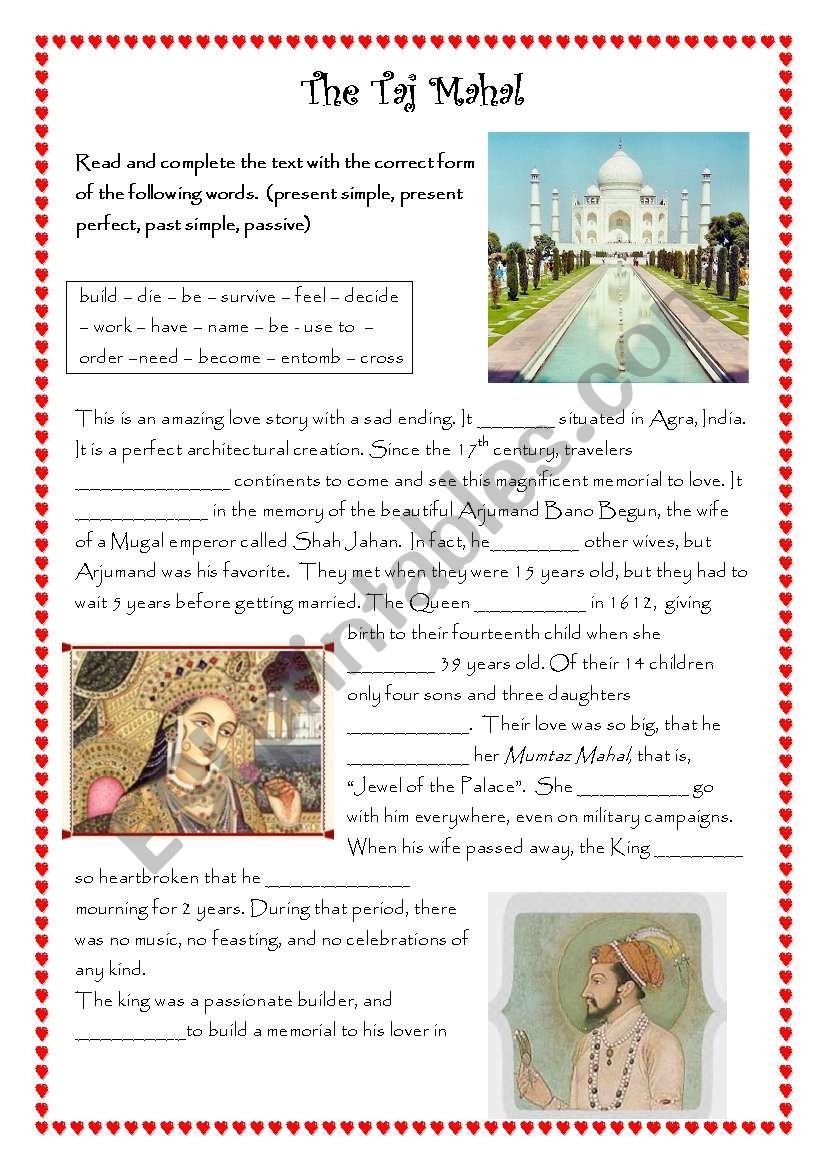 The Taj Mahal
Read and complete the text with the correct form
of the following words. (present simple, present
perfect, past simple, passive)
build – die – be – survive – feel – decide
– work – have – name – be - use to –
order –need – become – entomb – cross
This is an amazing love story with a sad ending. It ________ situated in Agra, India.
It is a perfect architectural creation. Since the 17th century, travelers
________________ continents to come and see this magnificent memorial to love. It
______________ in the memory of the beautiful Arjumand Bano Begun, the wife
of a Mugal emperor called Shah Jahan. In fact, he_________ other wives, but
Arjumand was his favorite. They met when they were 15 years old, but they had to
wait 5 years before getting married. The Queen ____________ in 1612, giving
birth to their fourteenth child when she
_________ 39 years old. Of their 14 children
only four sons and three daughters
_____________. Their love was so big, that he
_____________ her Mumtaz Mahal, that is,
“Jewel of the Palace”. She ____________ go
with him everywhere, even on military campaigns.
When his wife passed away, the King _________
so heartbroken that he _______________
mourning for 2 years. During that period, there
was no music, no feasting, and no celebrations of
any kind.
The king was a passionate builder, and
____________to build a memorial to his lover in
ESLprintables.com